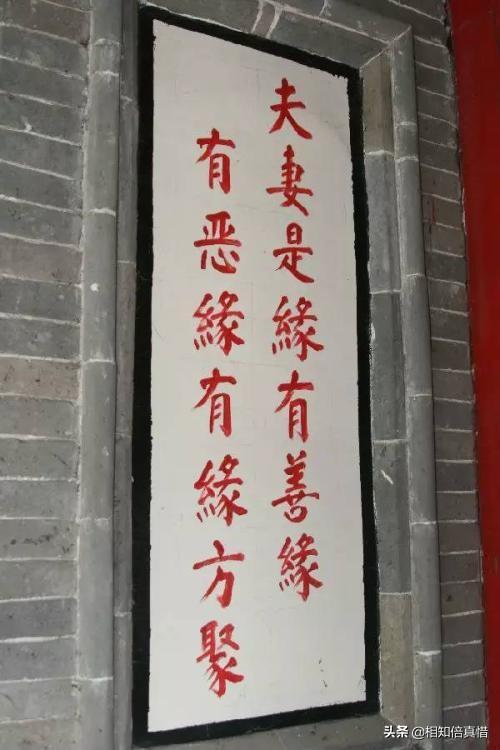 夫妻是緣有善緣
有恶緣有緣方聚
头条 @相知倍真惜